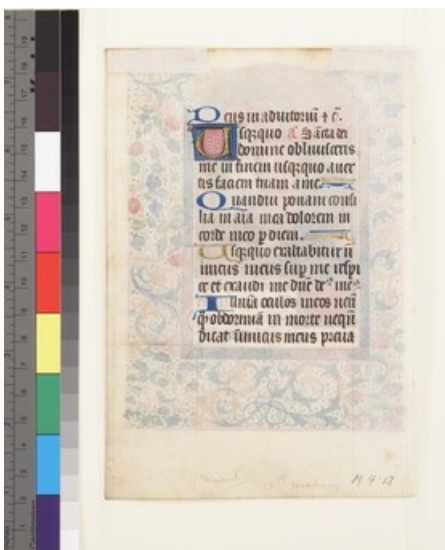 Deus in adiutoriū ⁊ c̄.
Usq̄quo a͛ Sācta dei
domine obliuisceris
me in finem usq̄quo auer
tis faciem tuam a me
Quandiu ponam consi
lia in aīa mea dolorem in
corde meo p diem.
Usq̄quo exaltabitur in
imicus meus sup me respi
ce et exaudi me dn̄e de᷒ me᷒
Illumīa oculos meos ne ūq̄
q̄ obdormiā in morte neqn̄
dicat inimicus meus preua
M 9:13